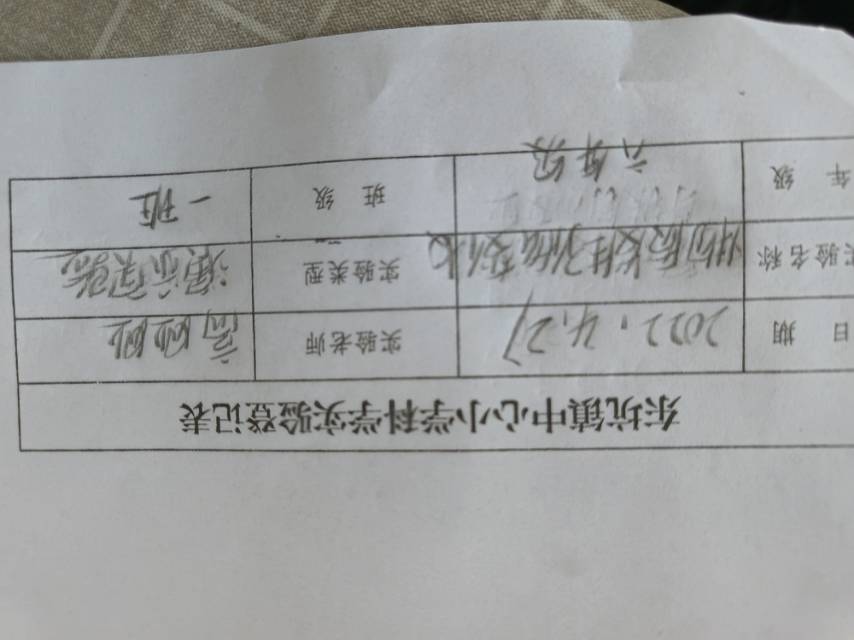 东坑镇中心小学科学实验登记表
日 期 2022.4.27 实验老师 高
实验名称 物质发生 变化 实验类型 演示实验
年 级 六年级 班 级 一班